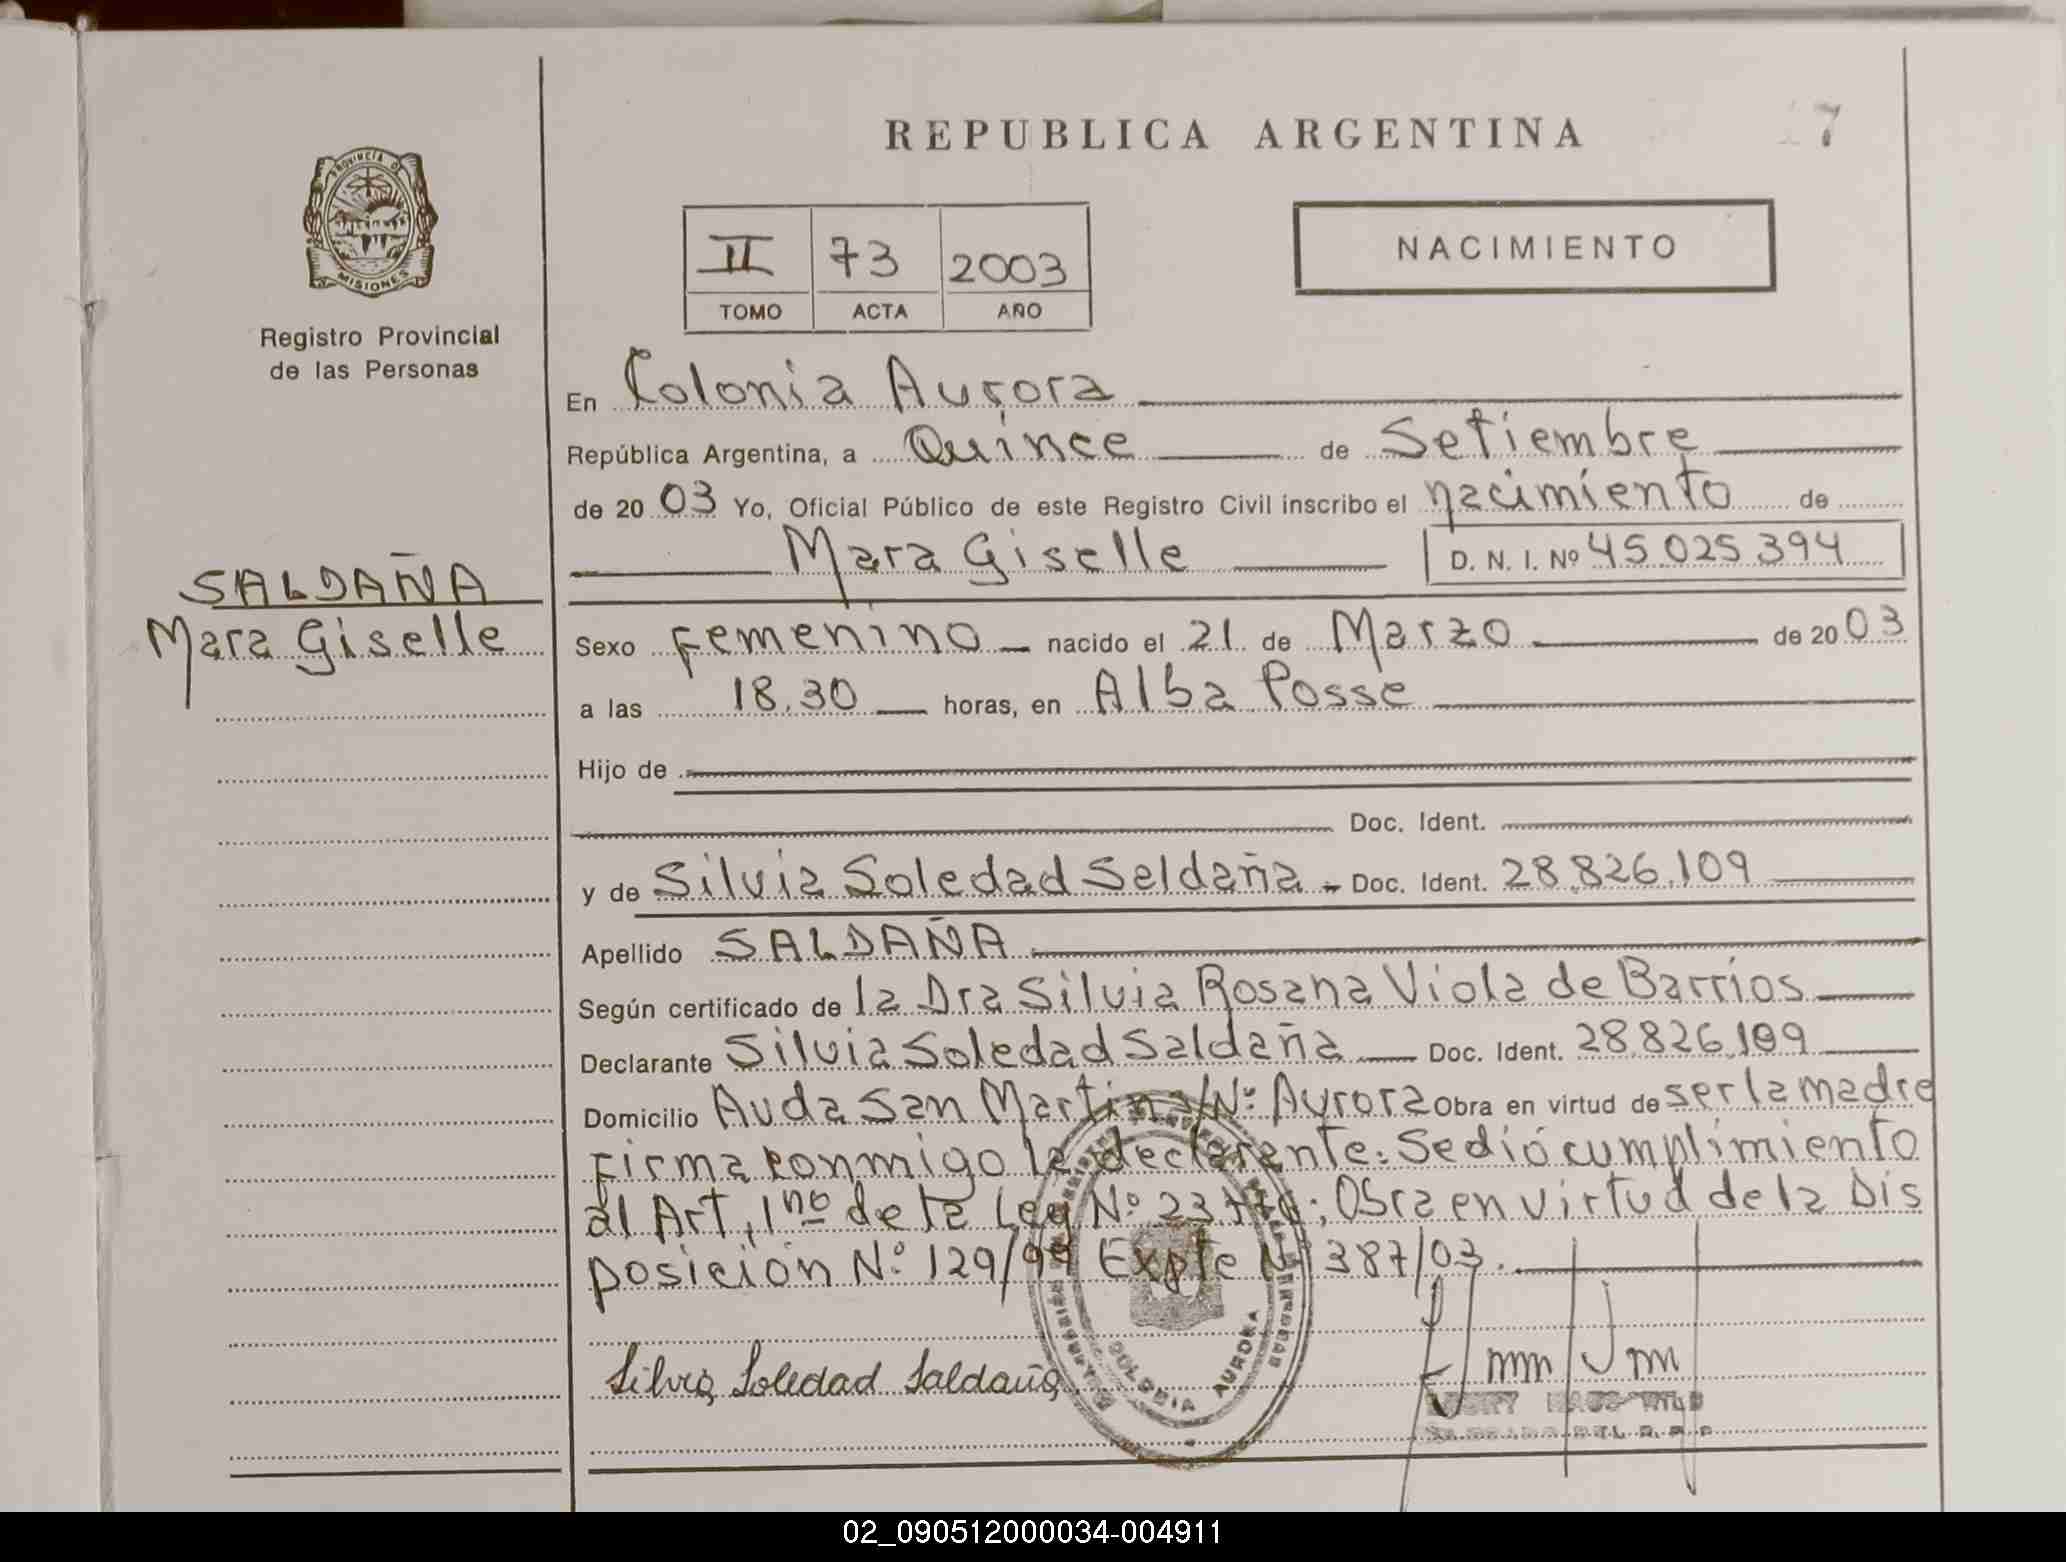 REPUBLICA ARGENTINA
7
PROVINCIA DE
MISIONES
Registro Provincial
de las Personas
II 73 2003
TOMO ACTA AÑO
NACIMIENTO
En Colonia Aurora
República Argentina, a Quince de Setiembre
de 20 03 Yo, Oficial Público de este Registro Civil inscribo el nacimiento de
Mara Giselle D. N. I. Nº 45.025.394
SALDAÑA
Mara Giselle
Sexo Femenino nacido el 21 de Marzo de 20 03
a las 18.30 horas, en Alba Posse
Hijo de
Doc. Ident.
y de Silvia Soledad Seldaña Doc. Ident. 28.826.109
Apellido SALDAÑA
Según certificado de la Dra Silvia Rosana Viola de Barrios
Declarante Silvia Soledad Saldaña Doc. Ident. 28.826.109
Domicilio Avda San Martin s/Nº Aurora Obra en virtud de ser la madre
Firma conmigo la declarante. Se dió cumplimiento
al Art. 1no de la Ley Nº 23.776; Obra en virtud de la Dis
posición Nº 129/99 Expte Nº 387/03.
COLONIA AURORA
Silvia Soledad Saldaña
02_090512000034-004911